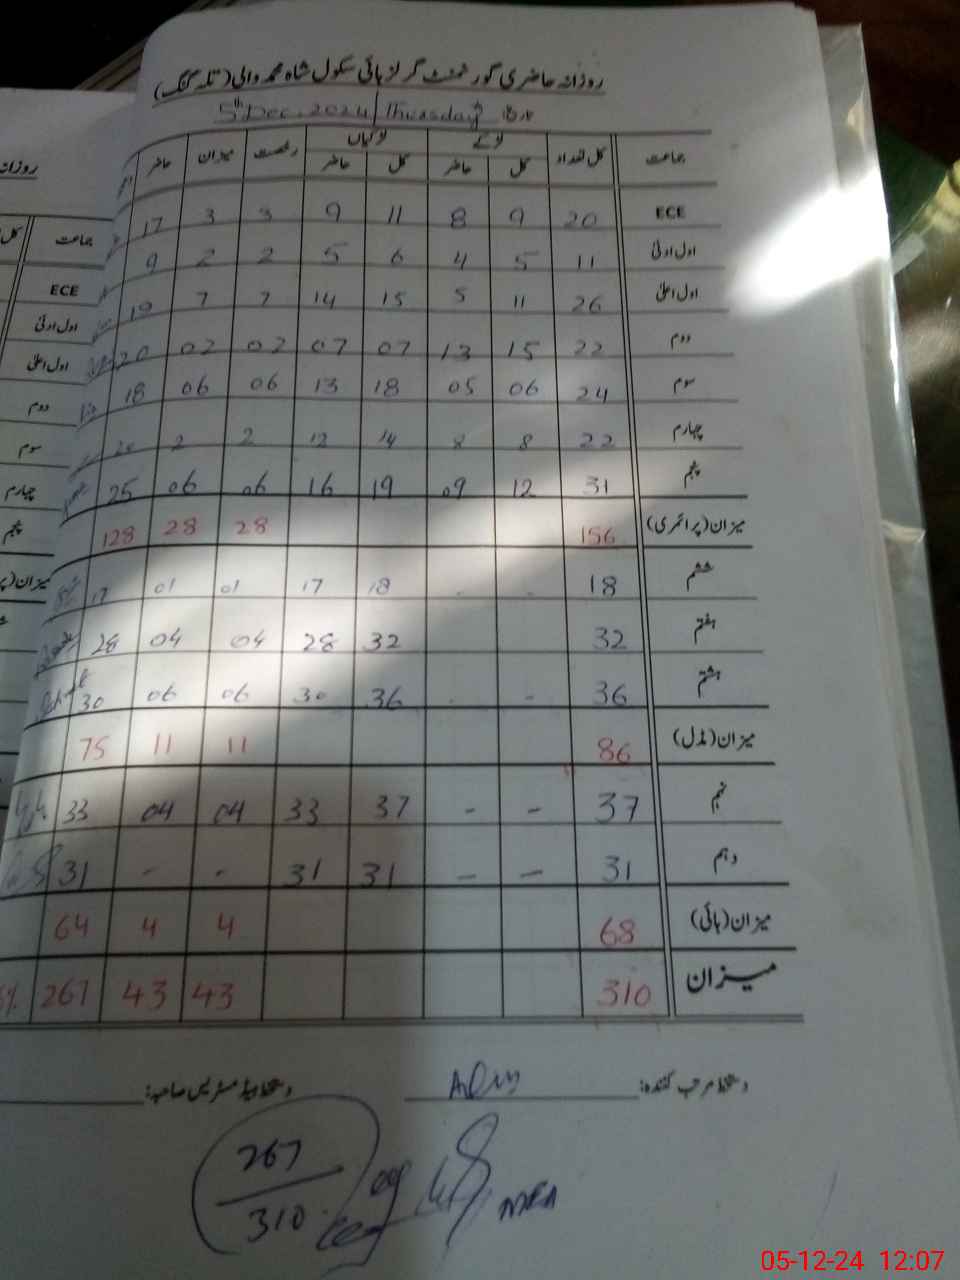 روزانہ حاضری گورنمنٹ گرلز ہائی سکول شاہ محمد والی (تلہ گنگ)
تاریخ 5th Dec. 2024 / Thursday
جماعت کل تعداد لڑکے لڑکیاں رخصت میزان حاضر
کل حاضر کل حاضر
ECE 20 9 8 11 9 3 3 17
اول ادنیٰ 11 5 4 6 5 2 2 9
اول اعلیٰ 26 11 5 15 14 7 7 19
دوم 22 15 13 07 07 02 02 20
سوم 24 06 05 18 13 06 06 18
چہارم 22 8 8 14 12 2 2 20
پنجم 31 12 09 19 16 06 06 25
میزان (پرائمری) 156 28 28 128
ششم 18 - - 18 17 01 01 17
ہفتم 32 32 28 04 04 28
ہشتم 36 - - 36 30 06 06 30
میزان (مڈل) 86 11 11 75
نہم 37 - - 37 33 04 04 33
دہم 31 - - 31 31 - - 31
میزان (ہائی) 68 4 4 64
میزان 310 43 43 267
دستخط مرتب کنندہ: دستخط ہیڈ مسٹریس صاحبہ:
267
310
MEA
روزانہ
جماعت کل
ECE
اول ادنیٰ
اول اعلیٰ
دوم
سوم
چہارم
پنجم
05-12-24 12:07